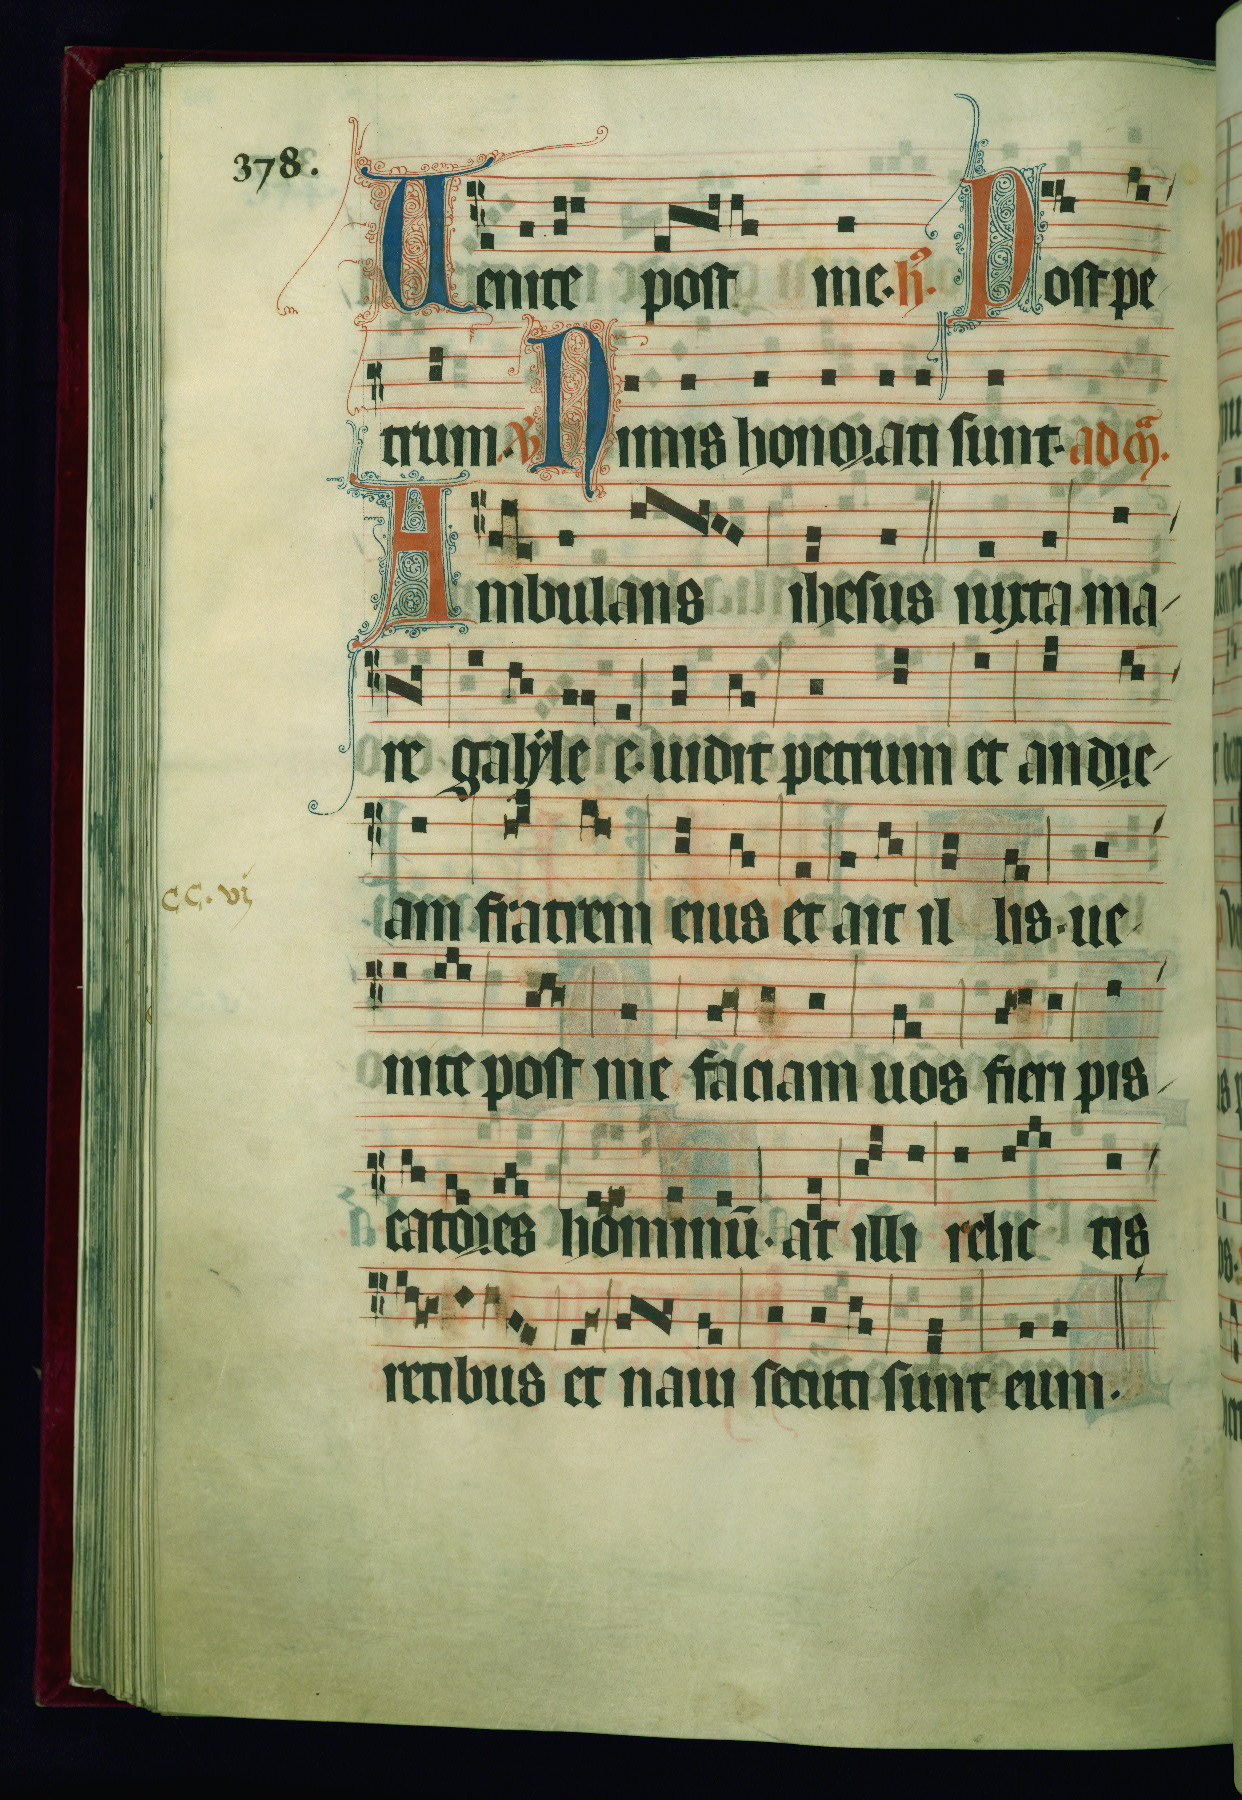 378.
Venite post me. R. Post pe
trum. V. Nimis honorati sunt. ad m̃.
Ambulans ihesus iuxta ma
re galyle e. uidit petrum et andre
am fratrem eius et ait il lis. ue
CC. vi
nite post me faciam uos fieri pis
catores hominū. at illi relic tis
retibus et naui secuti sunt eum.